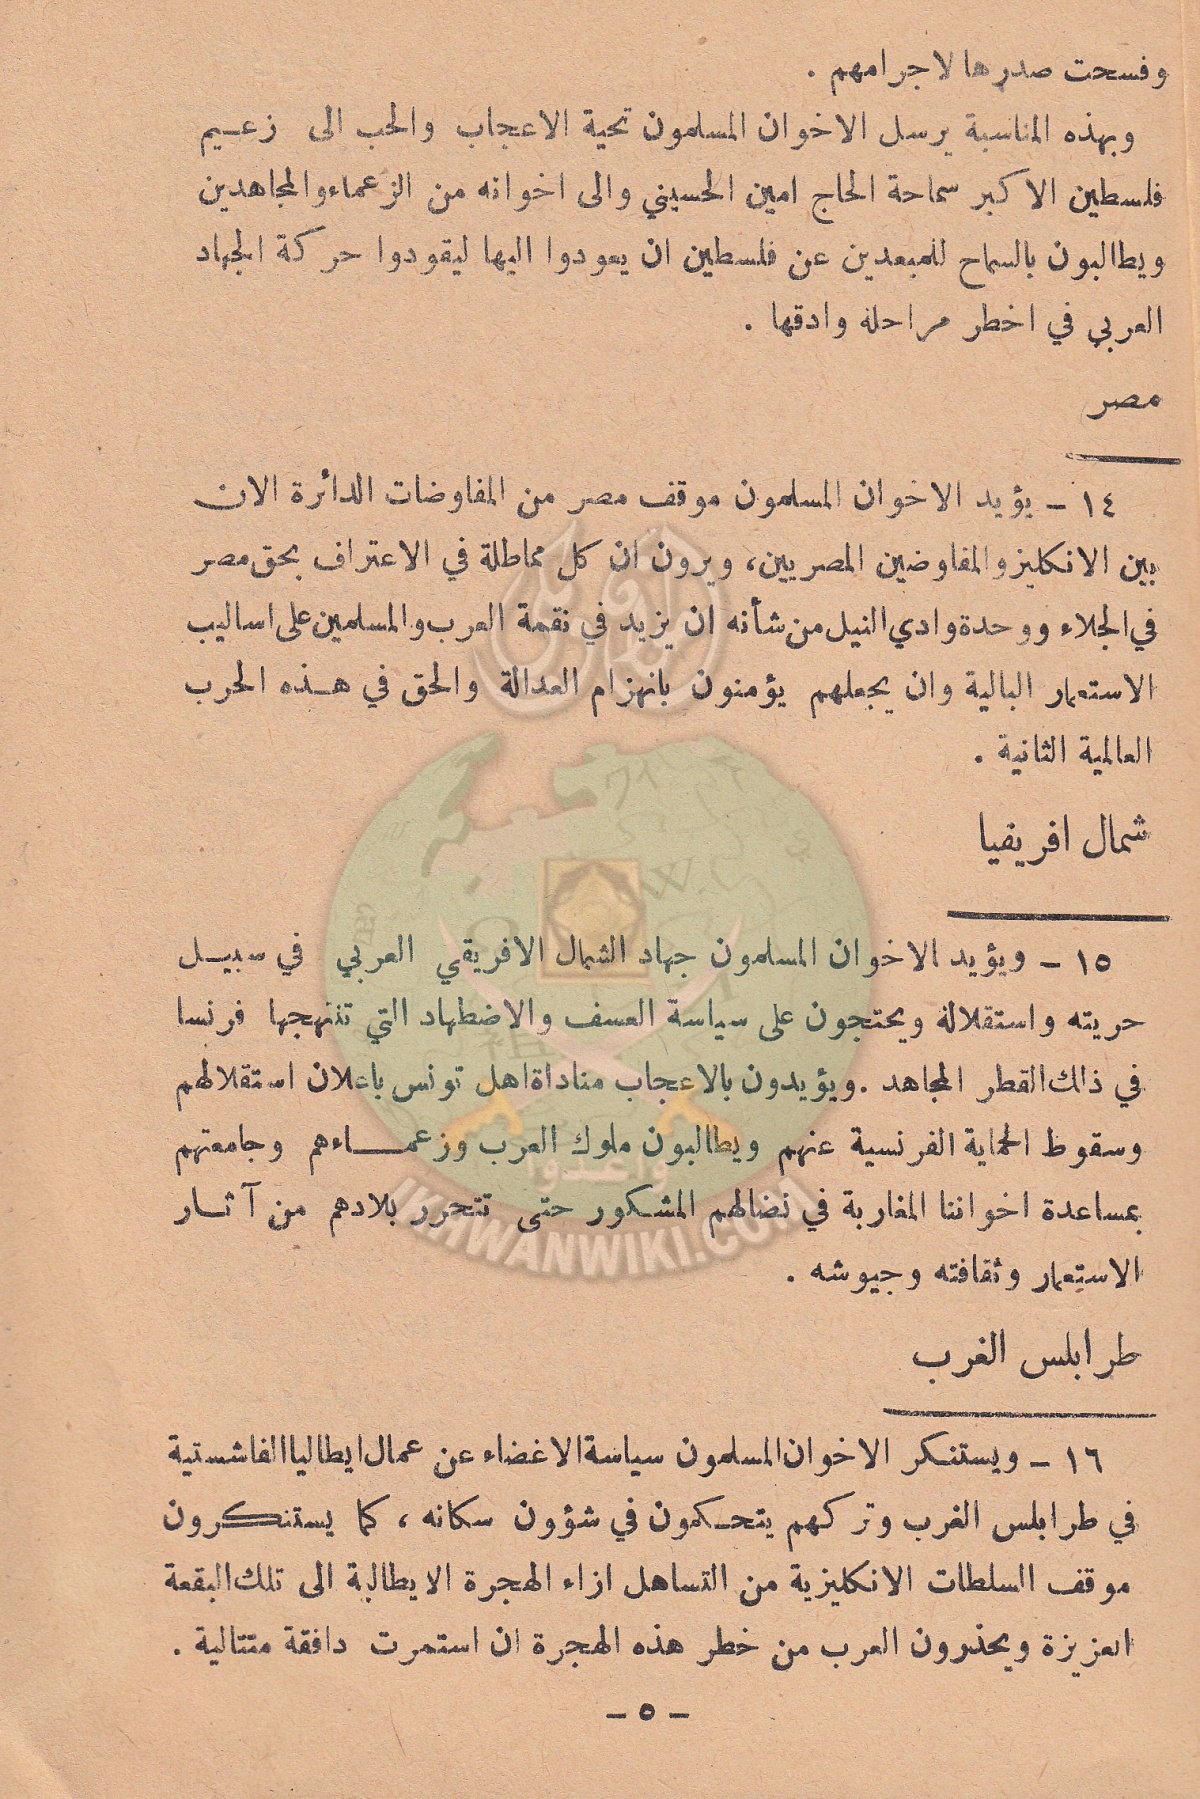 وفسحت صدرها لاجرامهم .
وبهذه المناسبة يرسل الاخوان المسلمون تحية الاعجاب والحب الى زعيم
فلسطين الاكبر سماحة الحاج امين الحسيني والى اخوانه من الزعماء والمجاهدين
ويطالبون بالسماح للمبعدين عن فلسطين ان يعودوا اليها ليقودوا حركة الجهاد
العربي في اخطر مراحله وادقها .
مصر
١٤ ـ يؤيد الاخوان المسلمون موقف مصر من المفاوضات الدائرة الان
بين الانكليز والمفاوضين المصريين، ويرون ان كل مماطلة في الاعتراف بحق مصر
في الجلاء ووحدة وادي النيل من شأنه ان يزيد في نقمة العرب والمسلمين على اساليب
الاستعمار البالية وان يجعلهم يؤمنون بانهزام العدالة والحق في هذه الحرب
العالمية الثانية .
شمال افريقيا
١٥ ـ ويؤيد الاخوان المسلمون جهاد الشمال الافريقي العربي في سبيل
حريته واستقلاله ويحتجون على سياسة العسف والاضطهاد التي تنتهجها فرنسا
في ذلك القطر المجاهد . ويؤيدون بالاعجاب مناداة اهل تونس باعلان استقلالهم
وسقوط الحماية الفرنسية عنهم ويطالبون ملوك العرب وزعماءهم وجامعتهم
بمساعدة اخواننا المغاربة في نضالهم المشكور حتى تتحرر بلادهم من آثار
الاستعمار وثقافته وجيوشه .
IKHWANWIKI.COM
طرابلس الغرب
١٦ ـ ويستنكر الاخوان المسلمون سياسة الاغضاء عن عمال ايطاليا الفاشستية
في طرابلس الغرب وتركهم يتحكمون في شؤون سكانه ، كما يستنكرون
موقف السلطات الانكليزية من التساهل ازاء الهجرة الايطالية الى تلك البقعة
العزيزة ويحذرون العرب من خطر هذه الهجرة ان استمرت دافقة متتالية .
ـ ٥ ـ